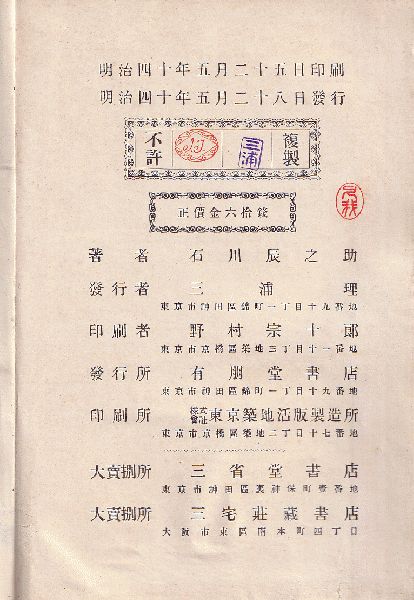 明治四十年五月二十五日印刷
明治四十年五月二十八日發行
不許 三浦 複製
正價金六拾錢
著者 石川辰之助
發行者 三浦理
東京市神田區錦町一丁目十九番地
印刷者 野村宗十郎
東京市京橋區築地三丁目十一番地
發行所 有朋堂書店
東京市神田區錦町一丁目十九番地
印刷所 株式會社東京築地活版製造所
東京市京橋區築地二丁目十七番地
大賣捌所 三省堂書店
東京市神田區裏神保町壹番地
大賣捌所 三宅莊藏書店
大阪市東區南本町四丁目